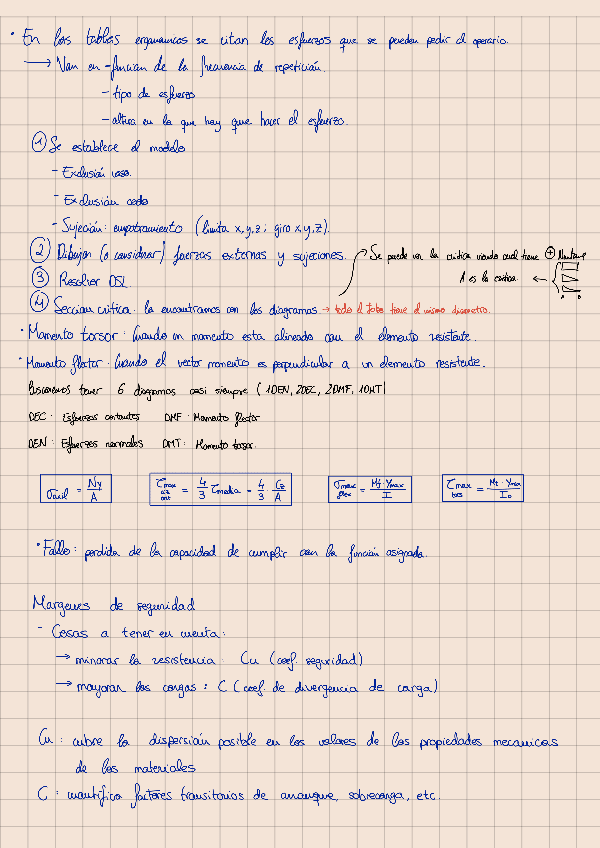 • En las tablas ergonomicas se citan los esfuerzos que se pueden pedir al operario.
→ Van en - funcion de la frecuencia de repetición.
- tipo de esfuerzo
- altura en la que hay que hacer el esfuerzo.
① Se establece el modelo
- Exclusión vaso.
- Exclusión codo
- Sujeción: empotramiento (limita x,y,z; giro x,y,z).
② Dibujar (o considerar) fuerzas externas y sujeciones.
Se puede ver la critica viendo cual tiene ⊕
A es la critica ←
③ Resolver DSL
④ Seccion critica: la encontramos con los diagramas → todo el tubo tiene el mismo diametro.
• Momento torsor: Cuando un momento esta alineado con el elemento resistente.
• Momento flector: Cuando el vector momento es perpendicular a un elemento resistente.
Buscaremos tener 6 diagramas casi siempre (1DEN, 2DEC, 2DMF, 1DMT)
DEC: Esfuerzos cortantes DMF: Momento flector
DEN: Esfuerzos normales DMT: Momento torsor.
σaxil = Ny/A
τmax cort = 4/3 τmedia = 4/3 · Cz/A
σmax flex = Mf · Ymax / I
τmax tors = Mt · Ymax / I₀
• Fallo: perdida de la capacidad de cumplir con la función asignada.
Margenes de seguridad
- Cosas a tener en cuenta:
→ minorar la resistencia: Cu (coef. seguridad)
→ mayorar las cargas: C (coef. de divergencia de carga)
Cu: cubre la dispersión posible en los valores de las propiedades mecanicas
de los materiales
C: cuantifica factores transitorios de arranque, sobrecarga, etc.